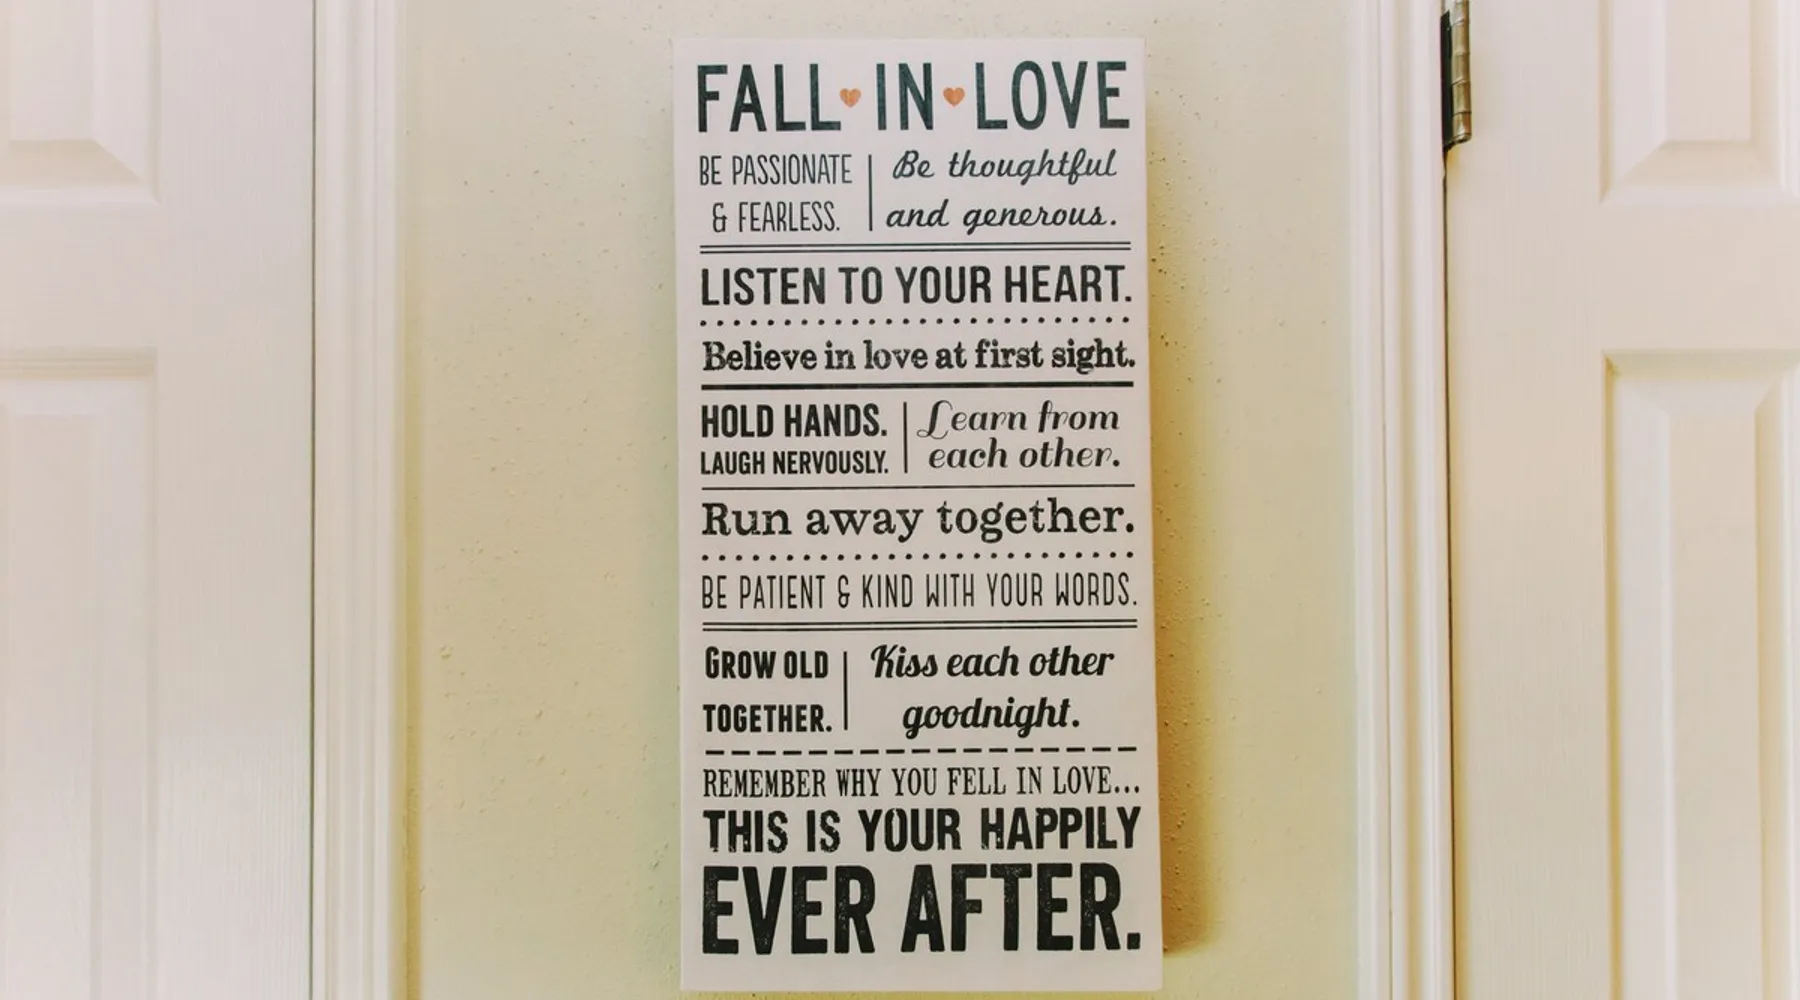 FALL IN LOVE
BE PASSIONATE
& FEARLESS.
Be thoughtful
and generous.
LISTEN TO YOUR HEART.
Believe in love at first sight.
HOLD HANDS.
LAUGH NERVOUSLY.
Learn from
each other.
Run away together.
BE PATIENT & KIND WITH YOUR WORDS.
GROW OLD
TOGETHER.
Kiss each other
goodnight.
REMEMBER WHY YOU FELL IN LOVE...
THIS IS YOUR HAPPILY
EVER AFTER.